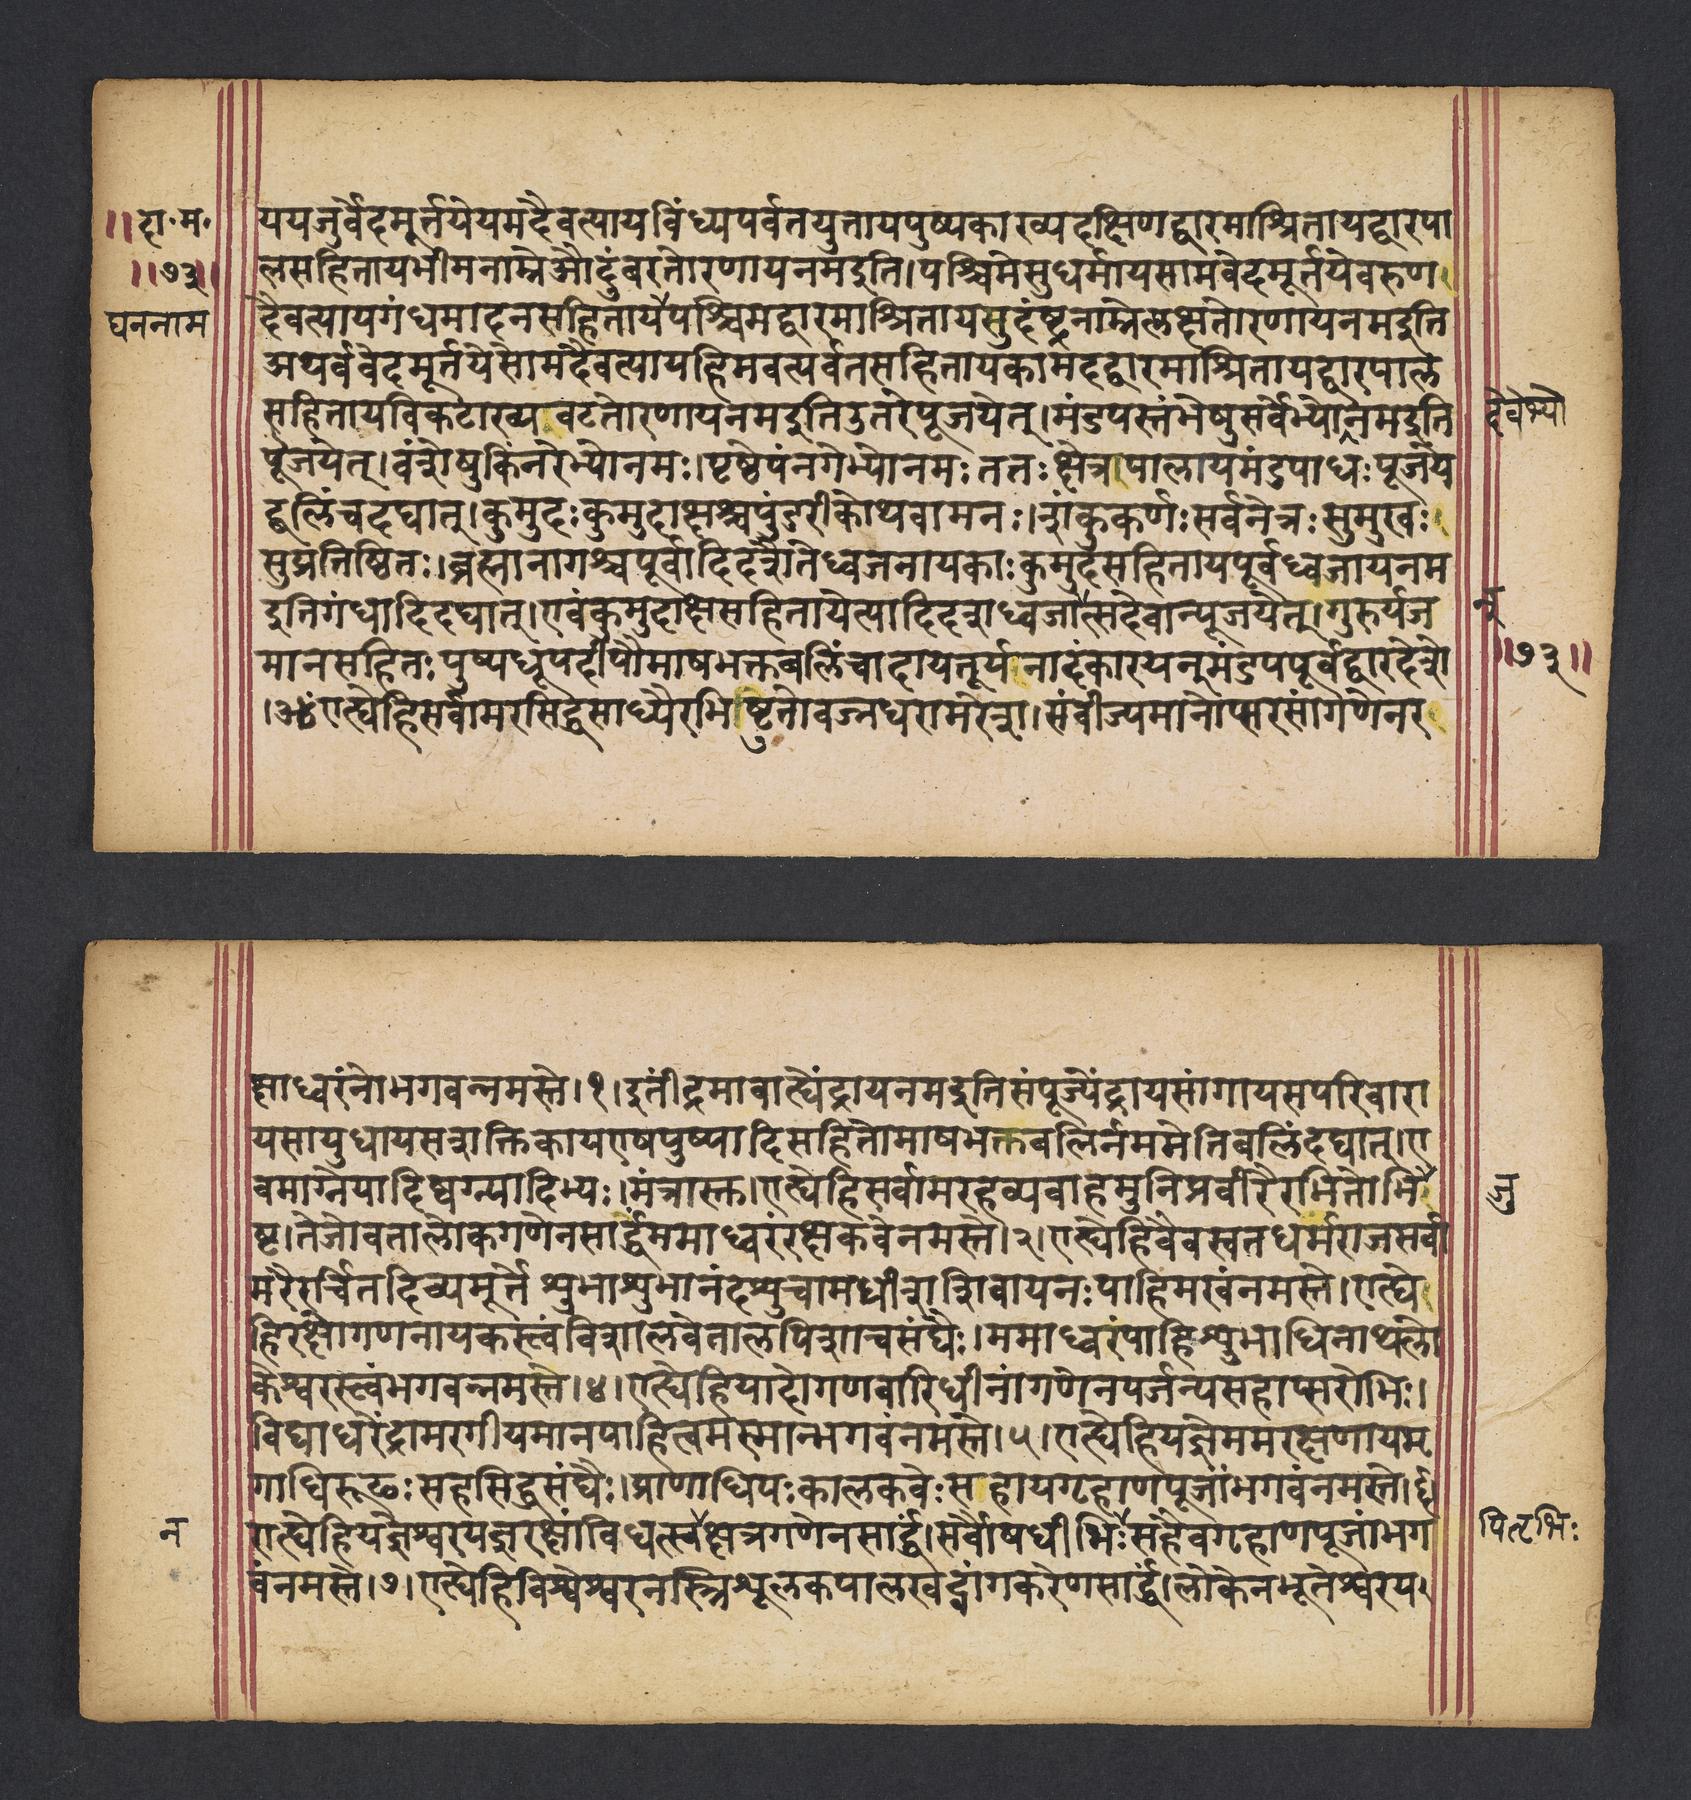 ॥दा॰म॰
॥७३॥
घननाम
ययजुर्वेदमूर्त्तयेयमदैवत्यायविंध्यपर्वतयुतायपुष्यकाख्यदक्षिणद्वारमाश्रितायद्वारपा
लसहितायभीमनाम्नेऔदुंबरतोरणायनमइति।पश्चिमेसुधर्मायसामवेदमूर्त्तयेवरुण
दैवत्यायगंधमादनसहितायपश्चिमद्वारमाश्रितायसुदंष्ट्रनाम्नेलक्षतोरणायनमइति
अथर्ववेदमूर्त्तयेसोमदैवत्यायहिमवत्पर्वतसहितायकामदद्वारमाश्रितायद्वारपाल
सहितायविकटाख्यवटतोरणायनमइतिउत्तरेपूजयेत्।मंडपस्तंभेषुसर्वेभ्योनमइति
देवेभ्यो
पूजयेत्।वंशेषुकिंनरेभ्योनमः।पृष्ठेपंनगेभ्योनमःततःक्षेत्रपालायमंडपाधःपूजय
द्बलिंचदद्यात्।कुमुदःकुमुदाक्षश्चपुंडरीकोथवामनः।शंकुकर्णःसर्वनेत्रःसुमुखः
सुप्रतिष्ठितः।ब्रह्मानागश्चपूर्वादिदशैतेध्वजनायकाःकुमुदसहितायपूर्वध्वजायनम
इतिगंधादिदद्यात्।एवंकुमुदाक्षसहितायेत्यादिदशध्वजांत्सदेवान्पूजयेत्।गुरुर्यज
नु
मानसहितःपुष्पधूपदीपौमाषभक्तबलिंचादायतूर्यनादंकारयनुमंडपपूर्वद्वारदेशे
॥७३॥
।ॐएत्द्येहिसर्वामरसिद्धसाध्यैरभिष्टुतोवज्रधरामरेश।संवीज्यमानोप्सरसांगणेनर
क्षाध्वरंनोभगवन्नमस्ते।१।इतींद्रमावात्द्येंद्रायनमइतिसंपूज्येंद्रायसांगायसपरिवारा
यसायुधायसशक्तिकायएषपुष्पादिसहितोमाषभक्तबलिर्नममेतिबलिंदद्यात्।ए
वमाग्नेयादिष्वग्न्यादिभ्यः।मंत्रास्क्त।एत्द्येहिसर्वामरहव्यवाहमुनिप्रवीरैरभितोभि
जु
ष्ट।तेजोवतालोकगणेनसार्द्धंममाध्वरंरक्षकवेनमस्ते।२।एत्द्येहिवैवस्वतधर्मराजसर्वा
मरैरर्चितदिव्यमूर्त्तेशुभाशुभानंदशुचामधीशशिवायनःपाहिमखंनमस्ते।एत्द्ये
हिरक्षोगणनायकस्त्वंविशालवेतालपिशाचसंघैः।ममाध्वरंपाहिशुभाधिनाथलो
केश्वरस्त्वंभगवन्नमस्ते।४।एत्द्येहियादोगणवारिधीनांगणेनपर्जन्यसहाप्सरोभिः।
विद्याधरेंद्रामरगीयमानपाहित्वमस्मान्भगवंनमस्ते।५।एत्द्येहियज्ञेममरक्षणायम्
गाधिरूढःसहसिद्धसंघैः।प्राणाधिपःकालकवेःसहायगृहाणपूजांभगवंनमस्ते।६
न
एत्द्येहियज्ञेश्वरयज्ञरक्षांविधत्स्वक्षत्रगणेनसार्द्धं।सर्वौषधीभिःसहैवगृहाणपूजांभग
पितृभिः
वंनमस्ते।७।एत्द्येहिविश्वेश्वरनस्त्रिशूलकपालखट्वांगकरेणसार्द्धं।लोकेनभूतेश्वरय